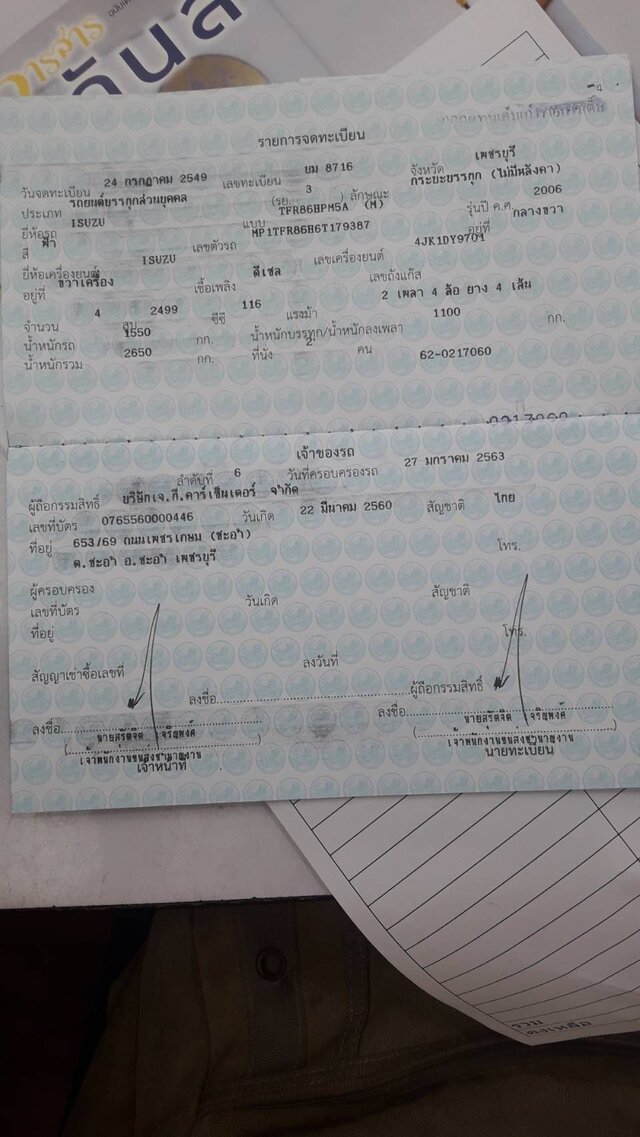 ารสาร
ฉบับที่
รายการจดทะเบียน
วันจดทะเบียน 24 กรกฎาคม 2549 เลขทะเบียน บม 8716 จังหวัด เพชรบุรี
ประเภท รถยนต์บรรทุกส่วนบุคคล (รย. 3 ) ลักษณะ กระบะบรรทุก (ไม่มีหลังคา)
ยี่ห้อรถ ISUZU แบบ TFR86HPM5A (M) รุ่นปี ค.ศ. 2006
สี ฟ้า เลขตัวรถ MP1TFR86H6T179387 อยู่ที่ กลางขวา
ยี่ห้อเครื่องยนต์ ISUZU เลขเครื่องยนต์ 4JK1DY9701
อยู่ที่ ขวาเครื่อง เชื้อเพลิง ดีเซล เลขถังแก๊ส
จำนวน 4 สูบ 2499 ซีซี 116 แรงม้า 2 เพลา 4 ล้อ ยาง 4 เส้น
น้ำหนักรถ 1550 กก. น้ำหนักบรรทุก/น้ำหนักลงเพลา 1100 กก.
น้ำหนักรวม 2650 กก. ที่นั่ง 2 คน 62-0217060
0217060
เจ้าของรถ
ลำดับที่ 6 วันที่ครอบครองรถ 27 มกราคม 2563
ผู้ถือกรรมสิทธิ์ บริษัทเจ.กี.คาร์เซ็นเตอร์ จำกัด
เลขที่บัตร 0765560000446 วันเกิด 22 มีนาคม 2560 สัญชาติ ไทย
ที่อยู่ 653/69 ถนนเพชรเกษม (ชะอำ) โทร.
ต.ชะอำ อ.ชะอำ เพชรบุรี
ผู้ครอบครอง
เลขที่บัตร วันเกิด สัญชาติ
ที่อยู่ โทร.
สัญญาเช่าซื้อเลขที่ ลงวันที่
ลงชื่อ ผู้ถือกรรมสิทธิ์
ลงชื่อ ลงชื่อ
นายสุรัตจิต เจริญพงศ์ นายสุรัตจิต เจริญพงศ์
เจ้าพนักงานขนส่งชำนาญงาน เจ้าพนักงานขนส่งชำนาญงาน
เจ้าหน้าที่ นายทะเบียน
รวม
คงเหลือ